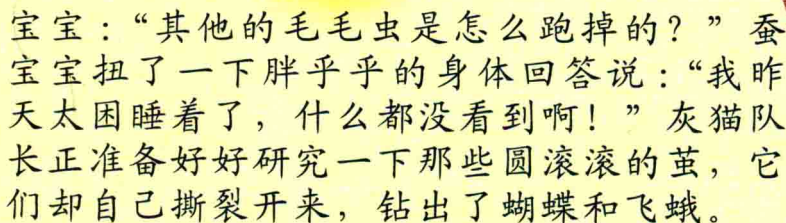 宝宝：“其他的毛毛虫是怎么跑掉的？”蚕
宝宝扭了一下胖乎乎的身体回答说：“我昨
天太困睡着了，什么都没看到啊！”灰猫队
长正准备好好研究一下那些圆滚滚的茧，它
们却自己撕裂开来，钻出了蝴蝶和飞蛾。